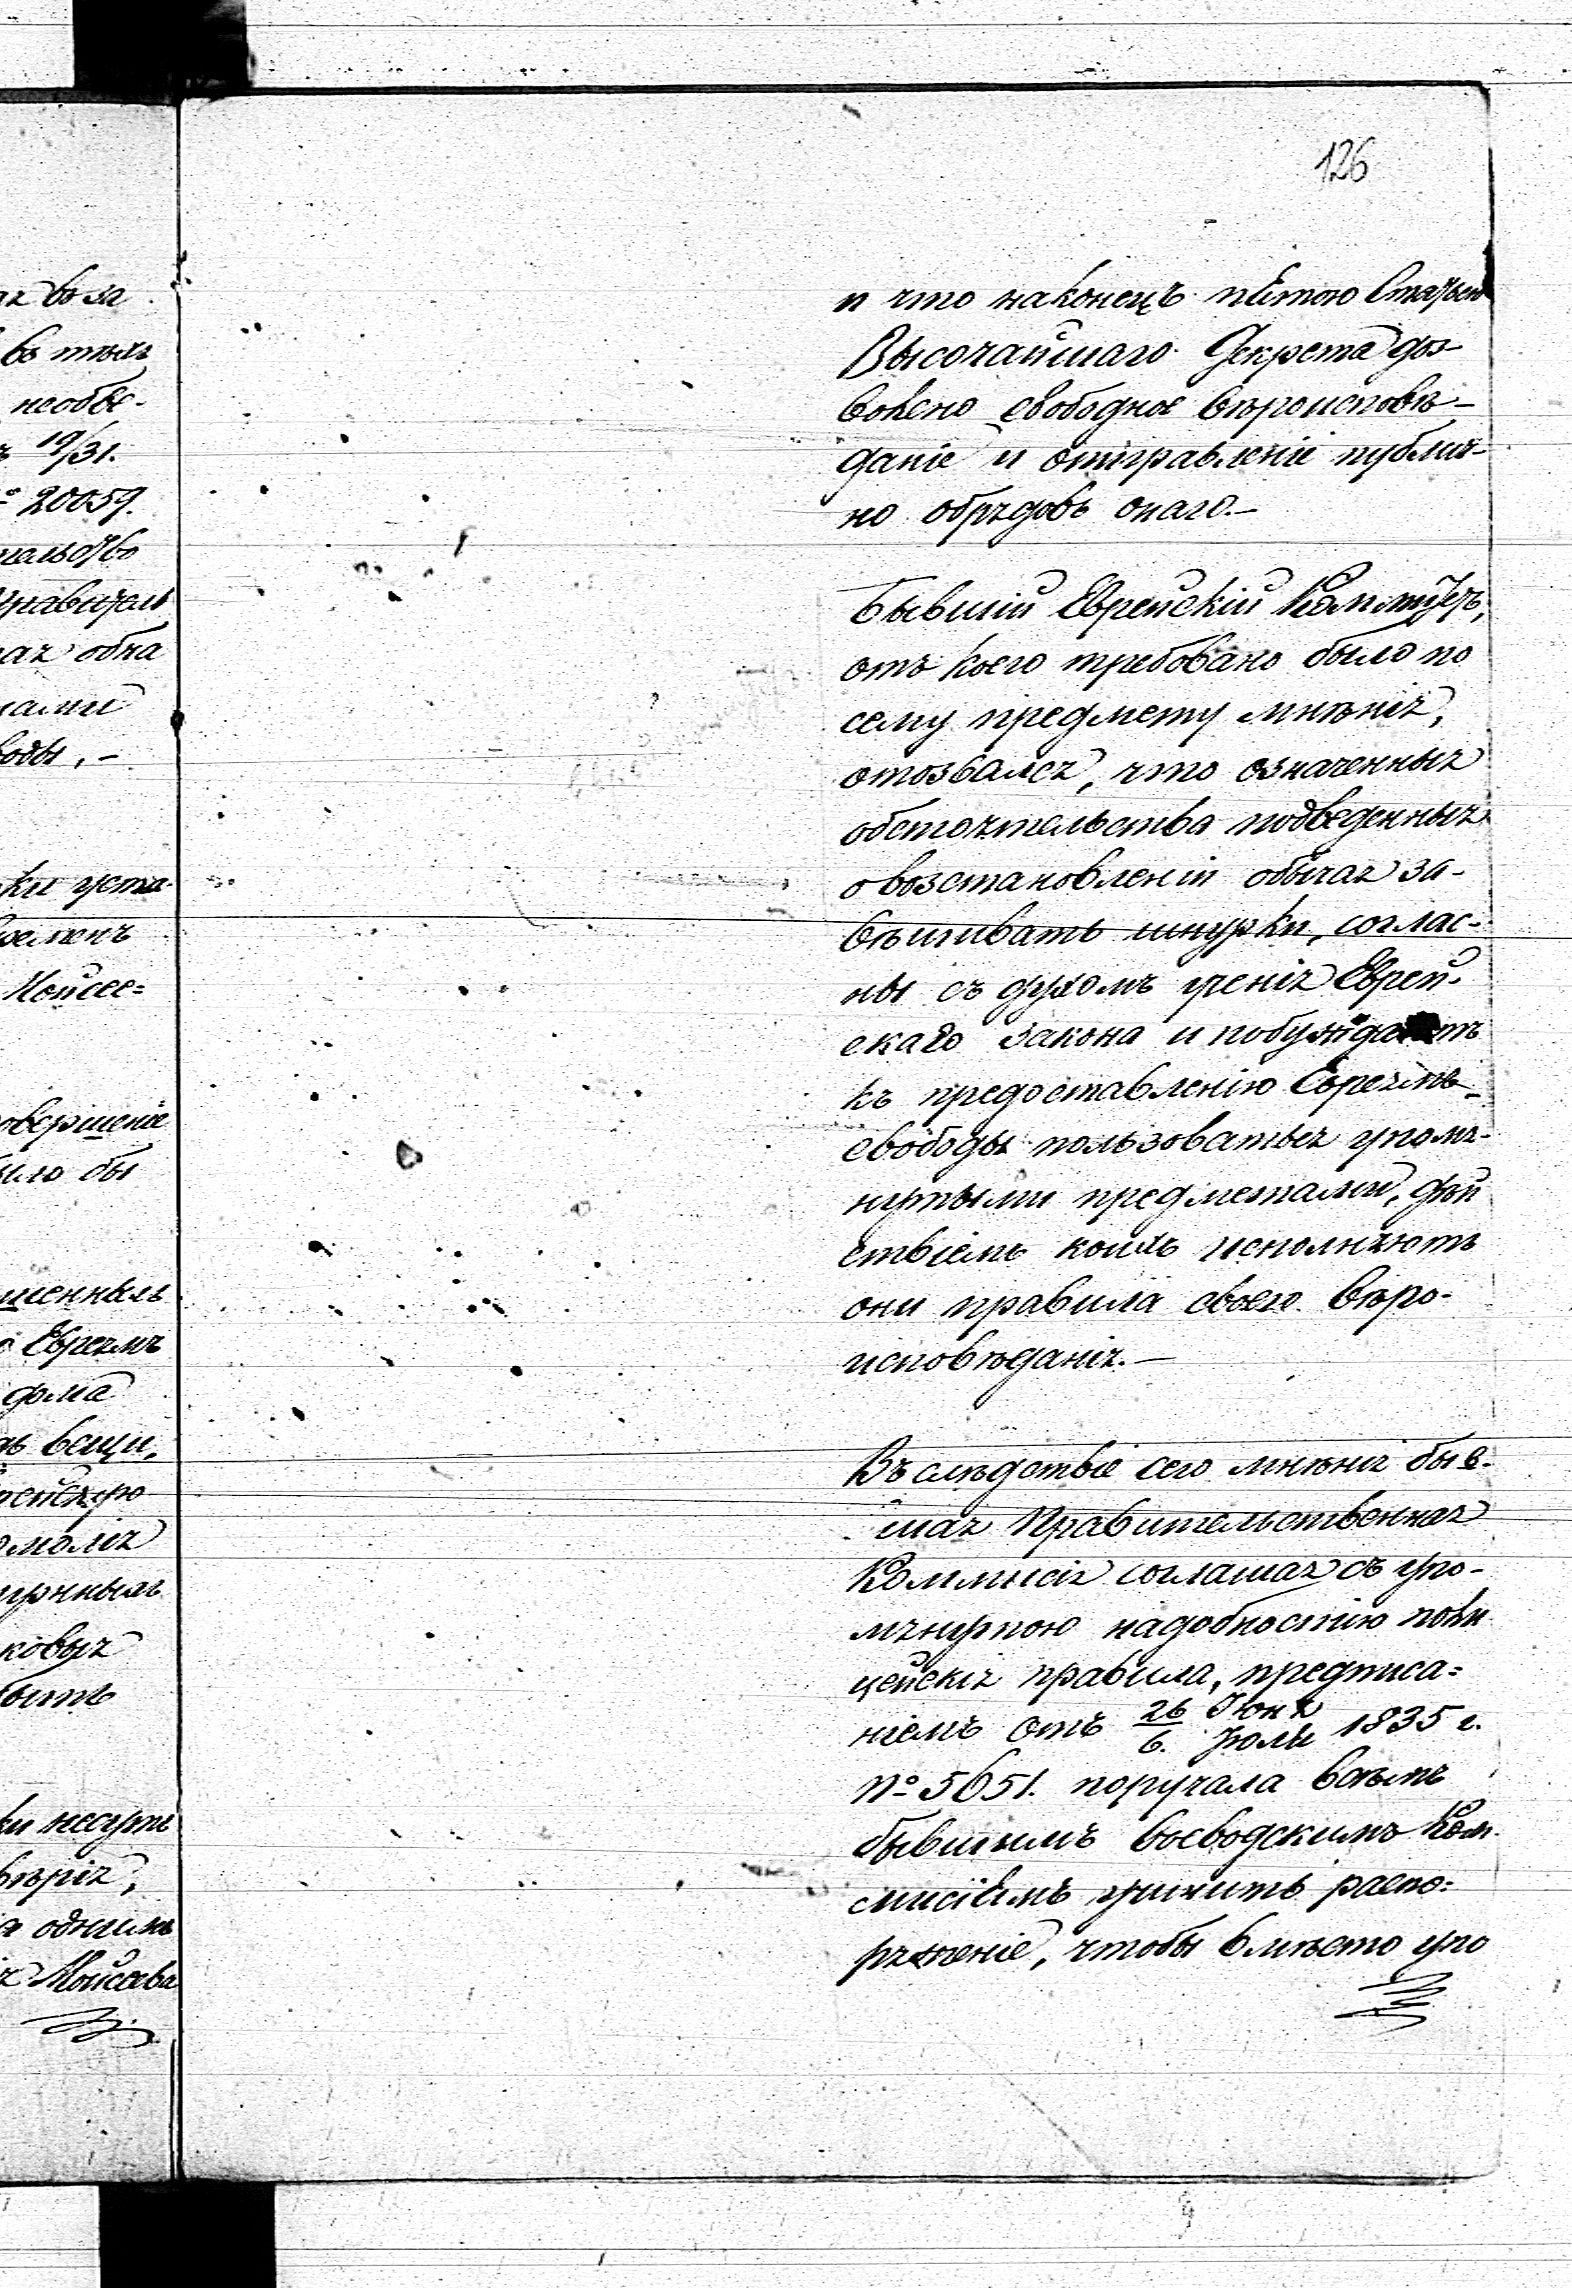 126
и что наконецъ пятою Статьею
Высочайшаго Декрета доз-
волено свободное вѣроисповѣ-
даніе и отправленіе публич-
но обрядовъ онаго.-
Бывшій Еврейскій Комитетъ,
отъ коего требовано было по
сему предмету мнѣнія,
отозвался, что означенныя
обстоятельства подведенныя
о возстановленіи обычая за-
вѣшивать шнурки, соглас-
ны съ духомъ ученія Еврей-
скаго закона и побуждаютъ
къ предоставленію Евреямъ
свободы пользоваться упомя-
нутыми предметами, дѣй
ствіемъ коихъ исполняютъ
они правила своего вѣро-
исповѣданія.-
Въ слѣдствіе сего мнѣнія быв-
шая Правительственная
Коммисія соглашая съ упо-
мянутою надобностію поли
цейскія правила, предписа=
ніемъ отъ 26/6. Іюня/Іюля 1835 г.
№ 5651. поручала всѣмъ
бывшимъ Воеводскимъ Ком
мисіямъ учинить распо=
ряженіе, чтобы вмѣсто упо
19/31.
20059.
необы-
обна
ки уста-
Мойсее=
овершеніе
было бы
Евреямъ
дома
вещи,
несутъ
однимъ
Мойсеева